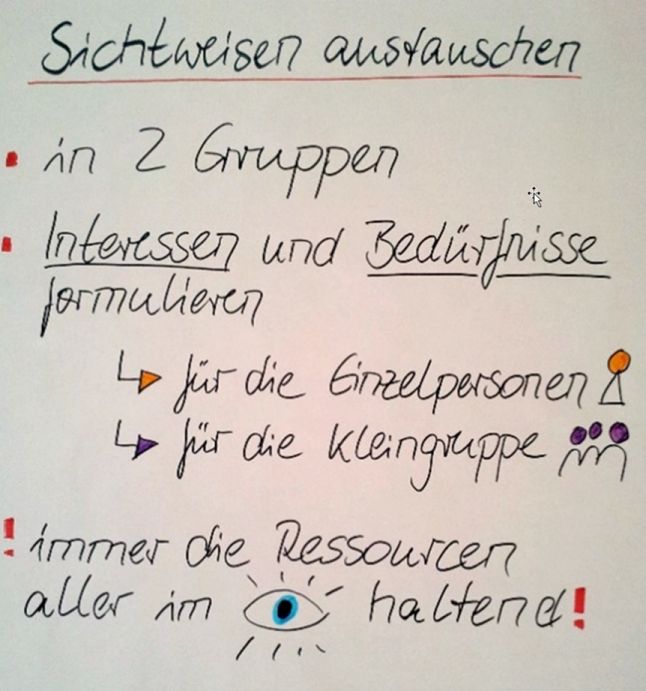 Sichtweisen austauschen
in 2 Gruppen
Interessen und Bedürfnisse
formulieren
für die Einzelpersonen
für die Kleingruppe
! immer die Ressourcen
aller im haltend!